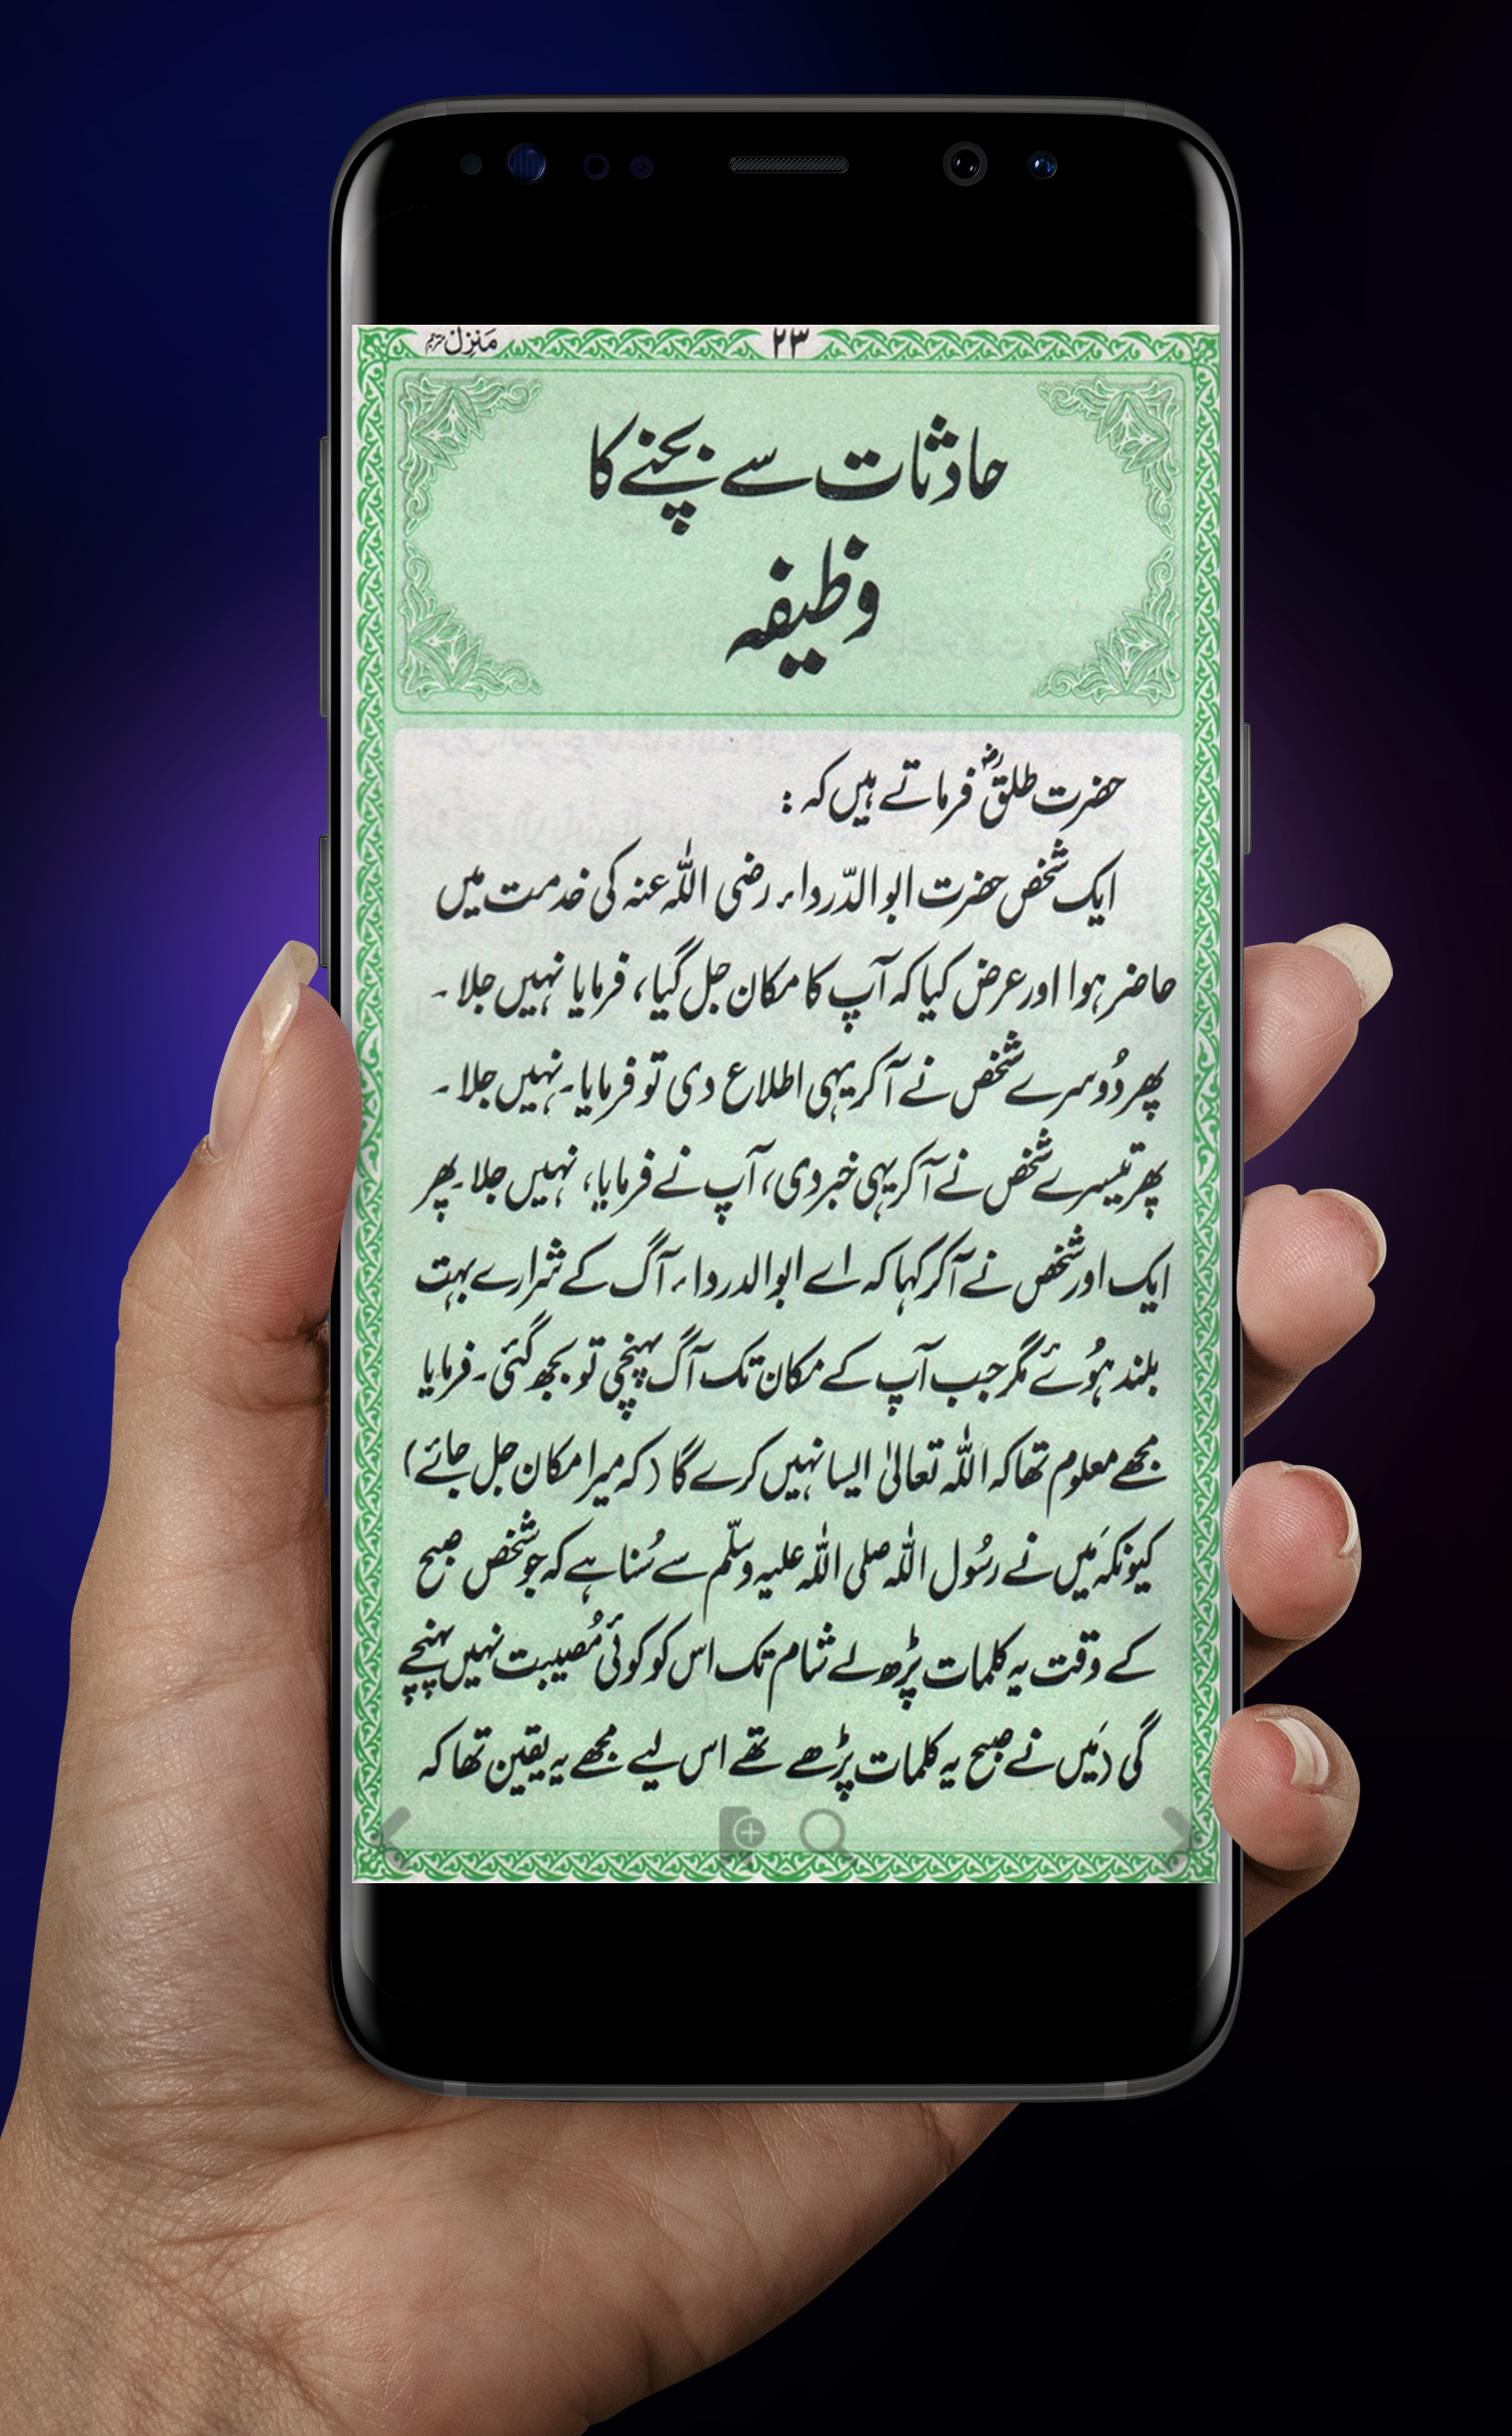 منزل مترجم
۲۳
حادثات سے بچنے کا
وظیفہ
حضرت طلقؓ فرماتے ہیں کہ :
ایک شخص حضرت ابو الدّرداء رضی اللہ عنہ کی خدمت میں
حاضر ہوا اور عرض کیا کہ آپ کا مکان جل گیا، فرمایا نہیں جلا ۔
پھر دُوسرے شخص نے آکر یہی اطلاع دی تو فرمایا۔ نہیں جلا ۔
پھر تیسرے شخص نے آکر یہی خبر دی، آپ نے فرمایا، نہیں جلا۔ پھر
ایک اور شخص نے آکر کہا کہ اے ابو الدرداء آگ کے شرارے بہت
بلند ہُوئے مگر جب آپ کے مکان تک آگ پہنچی تو بجھ گئی۔ فرمایا
مجھے معلوم تھا کہ اللہ تعالیٰ ایسا نہیں کرے گا (کہ میرا مکان جل جائے)
کیونکہ مَیں نے رسُول اللہ صلی اللہ علیہ وسلّم سے سُنا ہے کہ جو شخص صبح
کے وقت یہ کلمات پڑھ لے شام تک اس کو کوئی مُصیبت نہیں پہنچے
گی (مَیں نے صبح یہ کلمات پڑھے تھے اس لیے مجھے یہ یقین تھا کہ